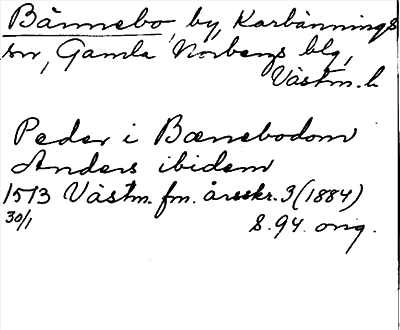 Bännebo, by, Karbännings
sn, Gamla Norbergs blg,
Västm. l.
Peder i Bænebodom
Anders ibidem
1513 Västm. fm. årsskr. 3 (1884)
30/1 S. 94. orig.